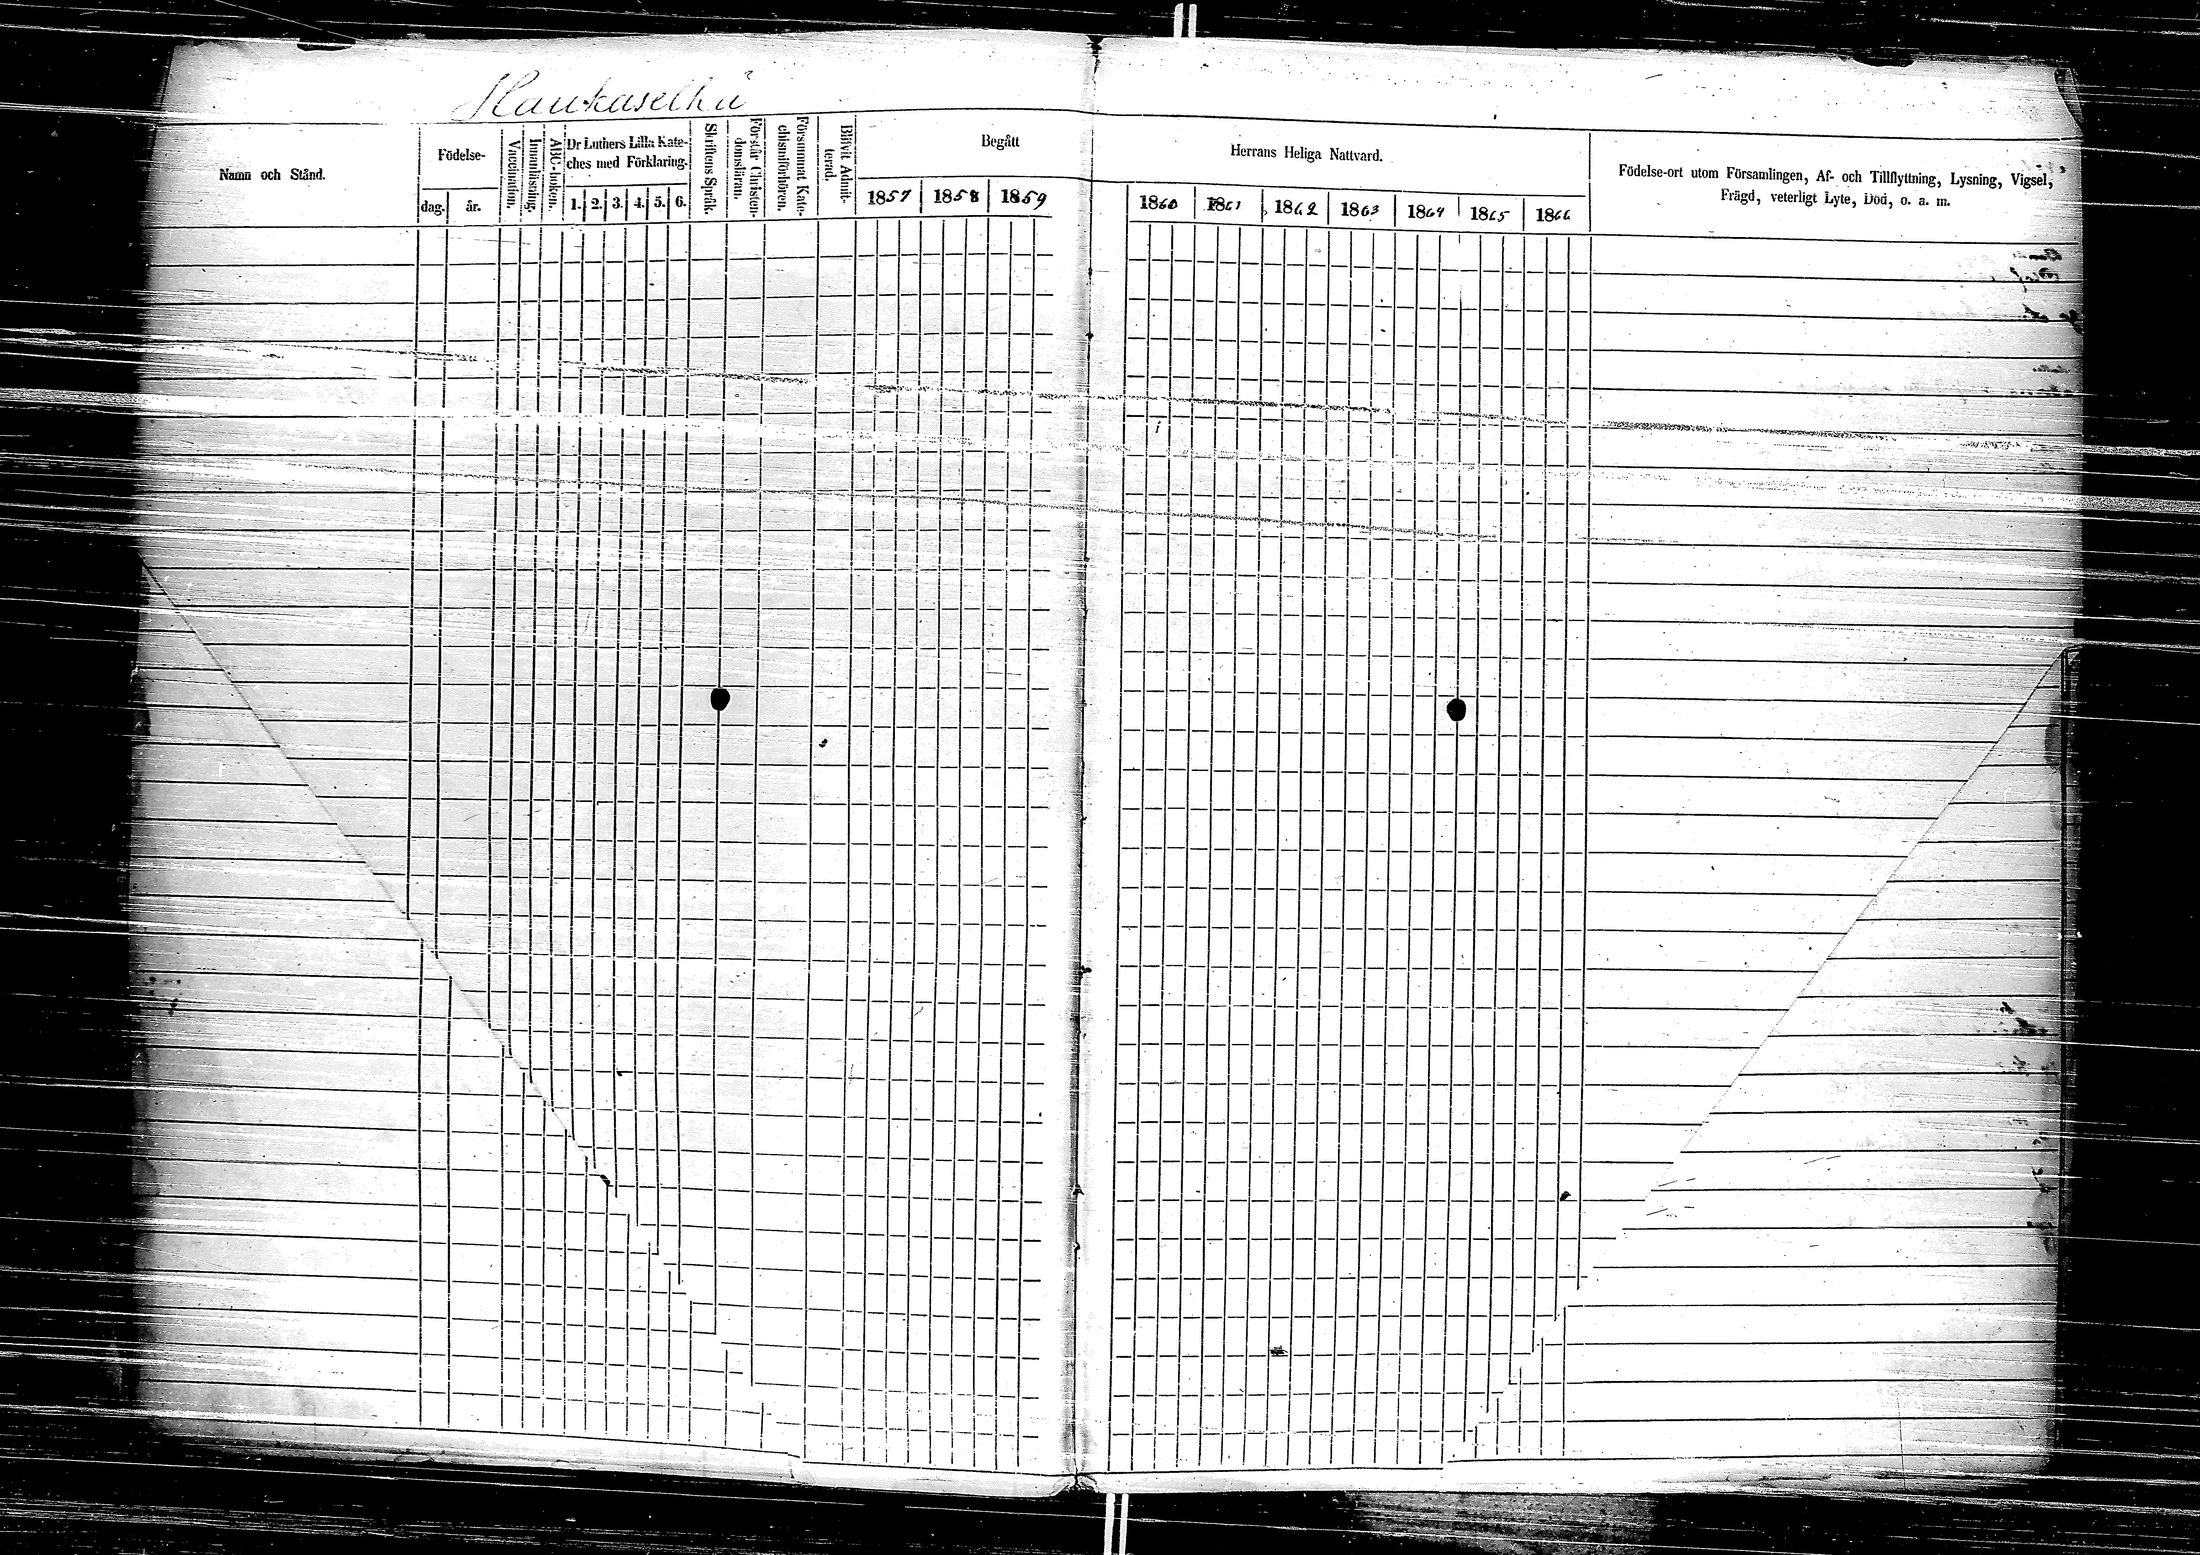 Haukaselkä
Namn och Stånd.
Födelse-
dag.
år.
Vaccination.
Innanläsning.
ABC-boken.
Dr Luthers Lilla Kate-
ches med Förklaring.
1. 2. 3. 4. 5. 6.
Skriftens Språk.
Förstår Christen-
domsläran.
Försummat Kate-
chismiförhören.
Blifvit Admit-
terad.
Begått
1857 1858 1859
Herrans Heliga Nattvard.
1860 1861 1862 1863 1864 1865 1866
Födelse-ort utom Församlingen, Af- och Tillflyttning, Lysning, Vigsel,
Frägd, veterligt Lyte, Död, o. a. m.